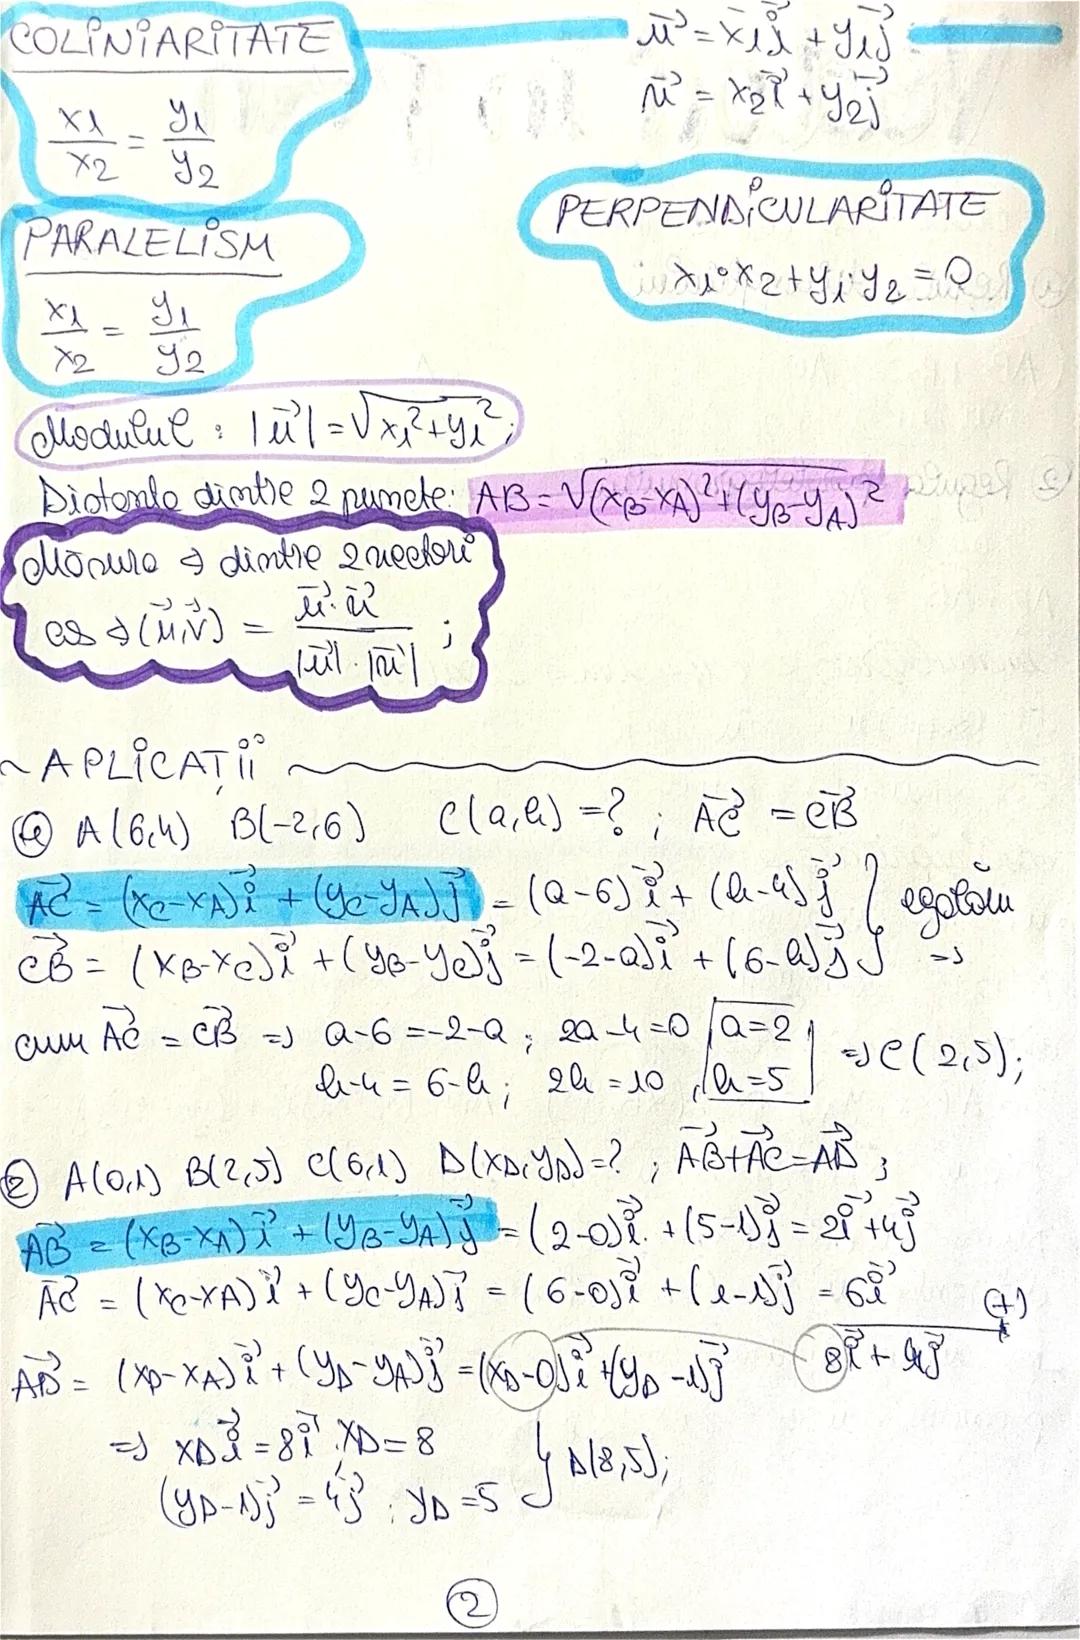 COLINIARITATE
x1/x2 = y1/y2
u⃗ = x1i⃗ + y1j⃗
v⃗ = x2i⃗ + y2j⃗
PARALELISM
x1/x2 = y1/y2
PERPENDICULARITATE
x1·x2+y1·y2 = 0
Modulul : |u⃗| = √x1²+y1²;
Distanta dintre 2 puncte: AB = √(xB-xA)²+(yB-yA)²
Măsura ∢ dintre 2 vectori
cos ∢(u⃗,v⃗) = u⃗·v⃗ / |u⃗|·|v⃗| ;
~ APLICAȚII
① A(6,4) B(-2,6) C(a,b) =? ; AC⃗ = CB⃗
AC⃗ = (xC-xA)i⃗ + (yC-yA)j⃗ = (a-6)i⃗ + (b-4)j⃗ } egalăm
CB⃗ = (xB-xC)i⃗ + (yB-yC)j⃗ = (-2-a)i⃗ + (6-b)j⃗ } =>
cum AC⃗ = CB⃗ => a-6 = -2-a ; 2a-4=0 a=2
b-4 = 6-b ; 2b = 10 , b=5 => C(2,5);
② A(0,1) B(2,5) C(6,1) D(xD,yD)=? ; AB⃗+AC⃗=AD⃗ ;
AB⃗ = (xB-xA)i⃗ + (yB-yA)j⃗ = (2-0)i⃗ + (5-1)j⃗ = 2i⃗+4j⃗
AC⃗ = (xC-xA)i⃗ + (yC-yA)j⃗ = (6-0)i⃗ + (1-1)j⃗ = 6i⃗ (+)
AD⃗ = (xD-xA)i⃗ + (yD-yA)j⃗ = (xD-0)i⃗ + (yD-1)j⃗ 8i⃗ + 4j⃗
=> xDi⃗ = 8i⃗ , xD = 8
(yD-1)j⃗ = 4j⃗ , yD = 5 } D(8,5);
②